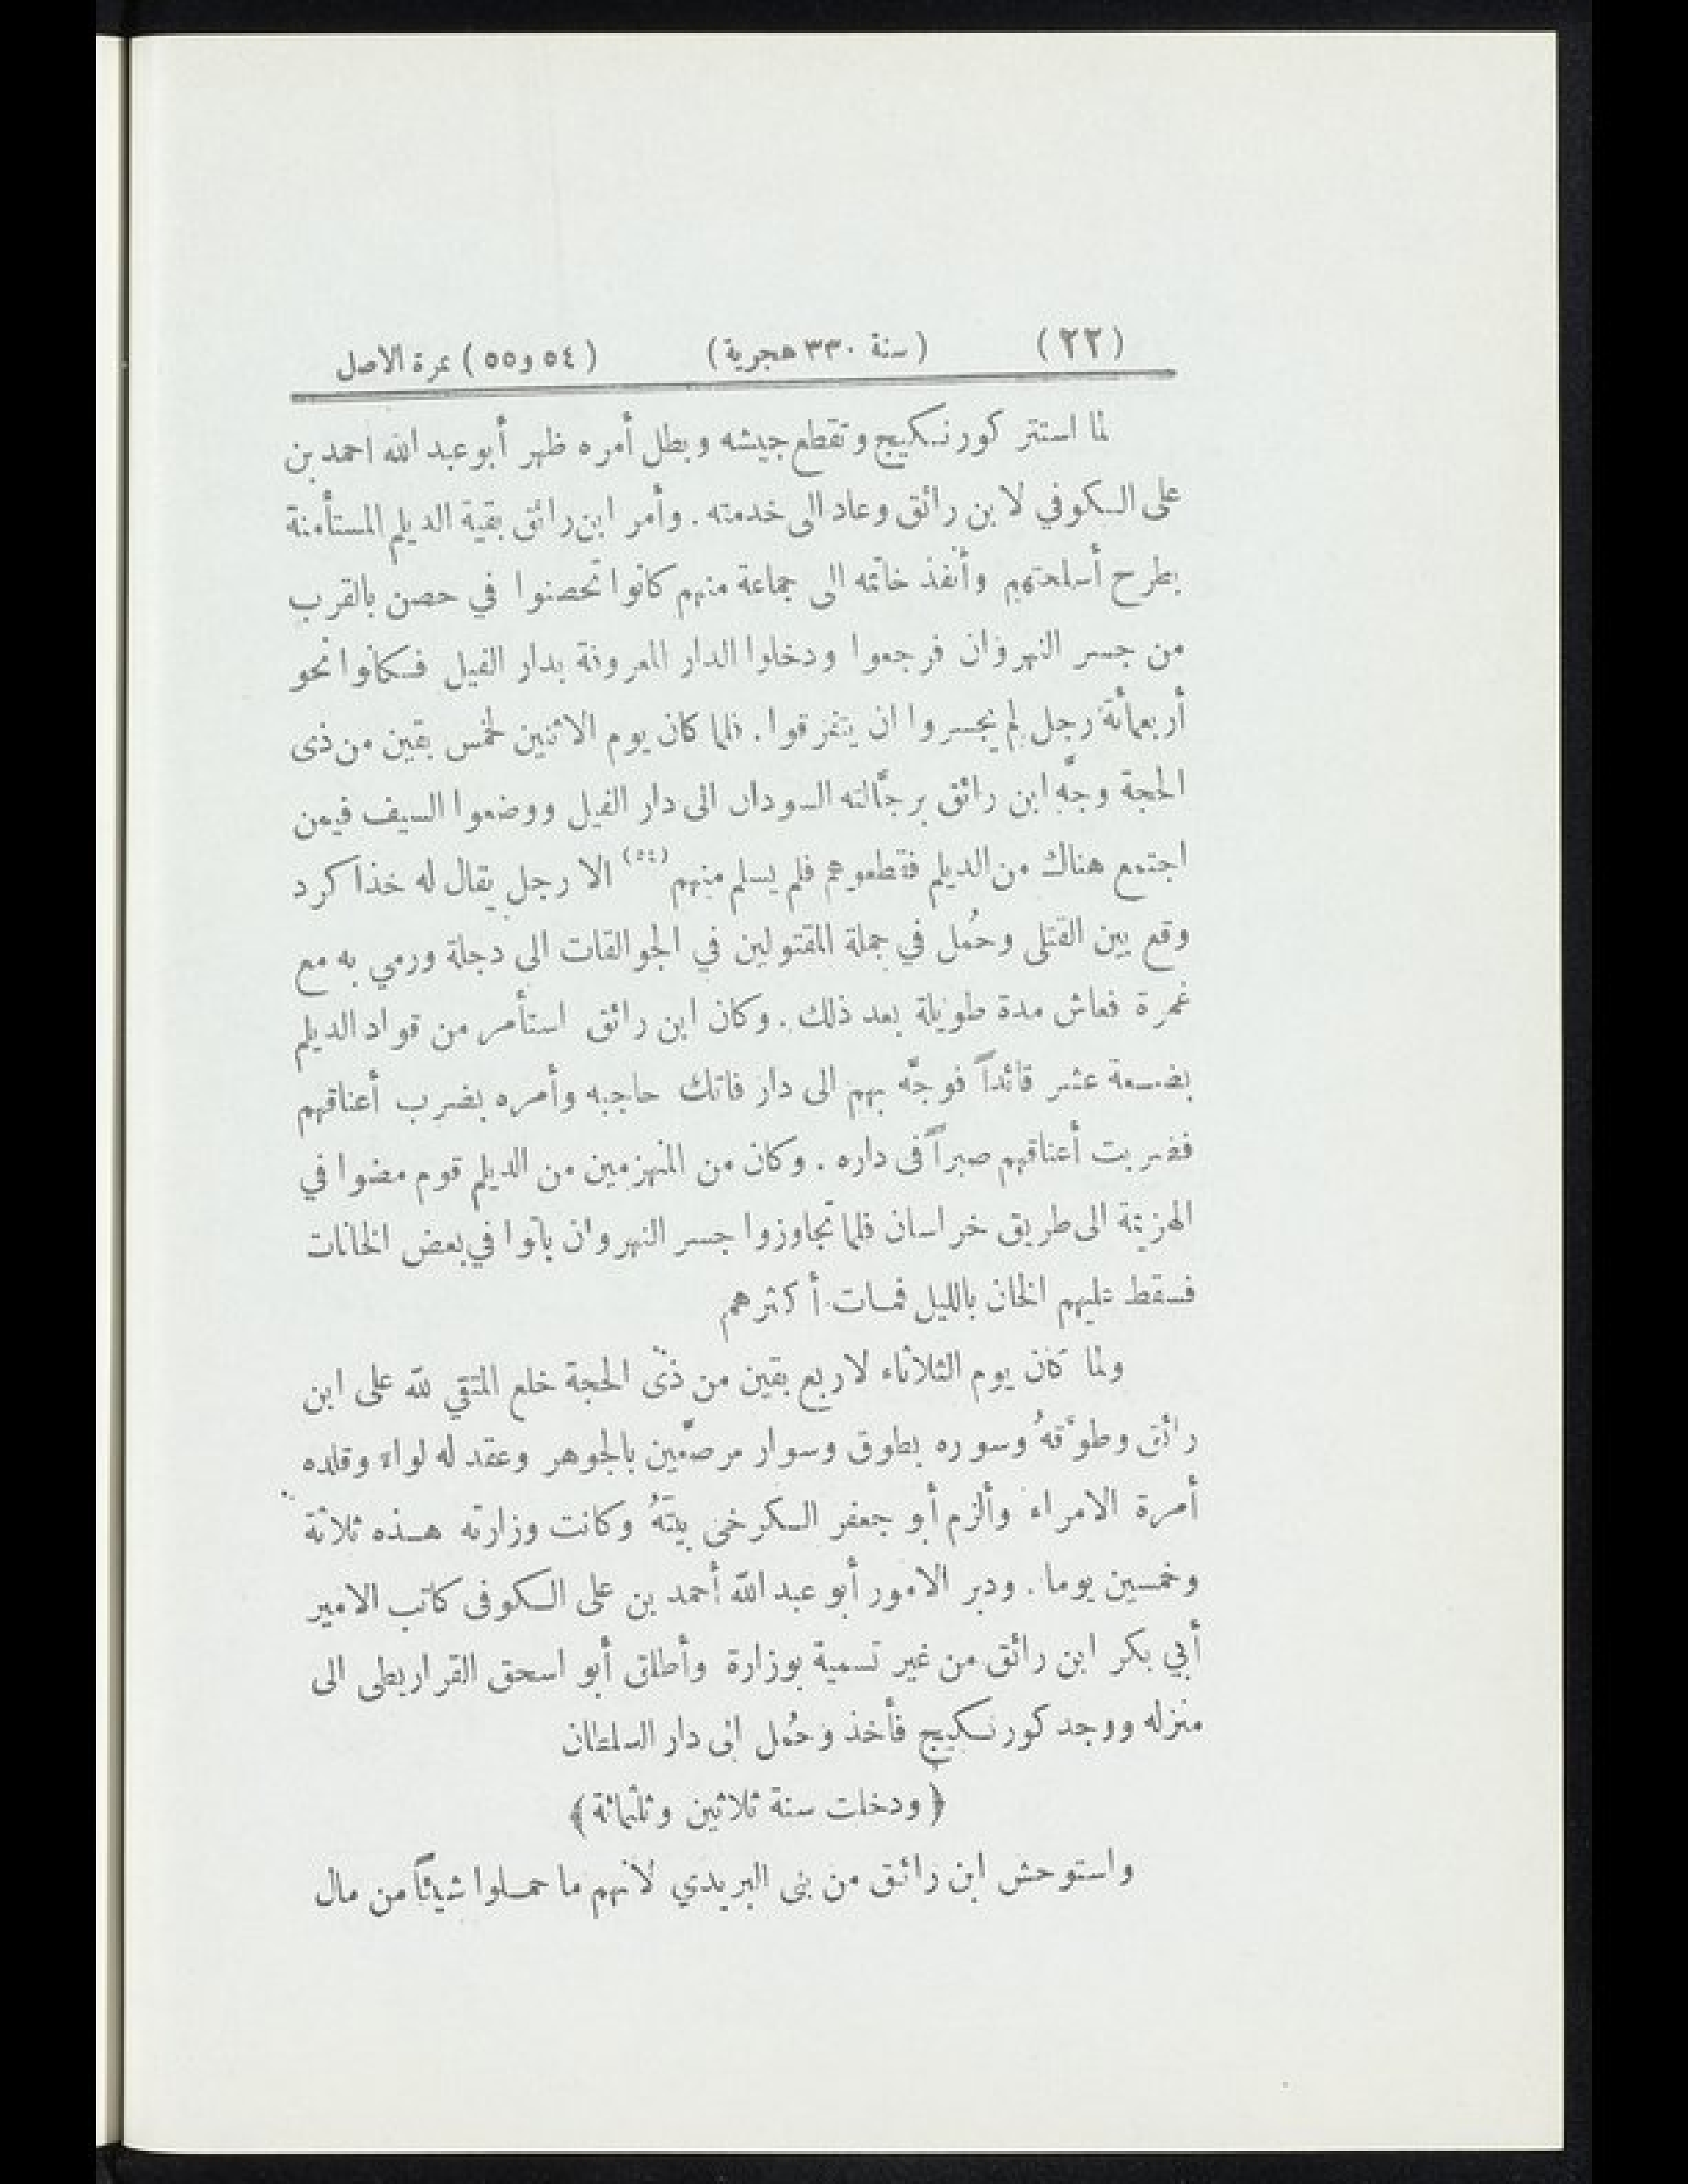 (٢٢) (سنة ٣٣٠ هجرية) (٥٤ و٥٥) نمرة الاصل
لما استتر كورنكيج وتقطع جيشه وبطل أمره ظهر أبو عبد الله احمد بن
على الكوفي لابن رائق وعاد الى خدمته . وأمر ابن رائق بقية الديلم المستأمنة
بطرح أسلحتهم وأنفذ خاتمه الى جماعة منهم كانوا تحصنوا في حصن بالقرب
من جسر النهروان فرجعوا ودخلوا الدار المعروفة بدار الفيل فكانوا نحو
أربعمائة رجل لم يجسروا ان يتفرقوا . فلما كان يوم الاثنين لخمس بقين من ذى
الحجة وجَّه ابن رائق برجَّالته السودان الى دار الفيل ووضعوا السيف فيمن
اجتمع هناك من الديلم فقطعوهم فلم يسلم منهم (٥٤) الا رجل يقال له خذا كرد
وقع بين القتلى وحُمل في جملة المقتولين في الجوالقات الى دجلة ورمي به مع
غمرة فعاش مدة طويلة بعد ذلك . وكان ابن رائق استأسر من قواد الديلم
بضعة عشر قائداً فوجَّه بهم الى دار فاتك حاجبه وأمره بضرب أعناقهم
فضربت أعناقهم صبراً فى داره . وكان من المنهزمين من الديلم قوم مضوا في
الهزيمة الى طريق خراسان فلما تجاوزوا جسر النهروان باتوا في بعض الخانات
فسقط عليهم الخان بالليل فمات أكثرهم
ولما كان يوم الثلاثاء لاربع بقين من ذى الحجة خلع المتقي لله على ابن
رائق وطوَّقهُ وسوره بطوق وسوار مرصَّعين بالجوهر وعقد له لواء وقلده
أمرة الامراء وألزم أبو جعفر الكرخى بيتهُ وكانت وزارته هذه ثلاثة
وخمسين يوما . ودبر الامور أبو عبد الله أحمد بن على الكوفى كاتب الامير
أبي بكر ابن رائق من غير تسمية بوزارة وأطلق أبو اسحق القراريطى الى
منزله ووجد كورنكيج فأخذ وحُمل الى دار السلطان
﴿ ودخلت سنة ثلاثين وثلثمائة ﴾
واستوحش ابن رائق من بنى البريدي لانهم ما حملوا شيئاً من مال